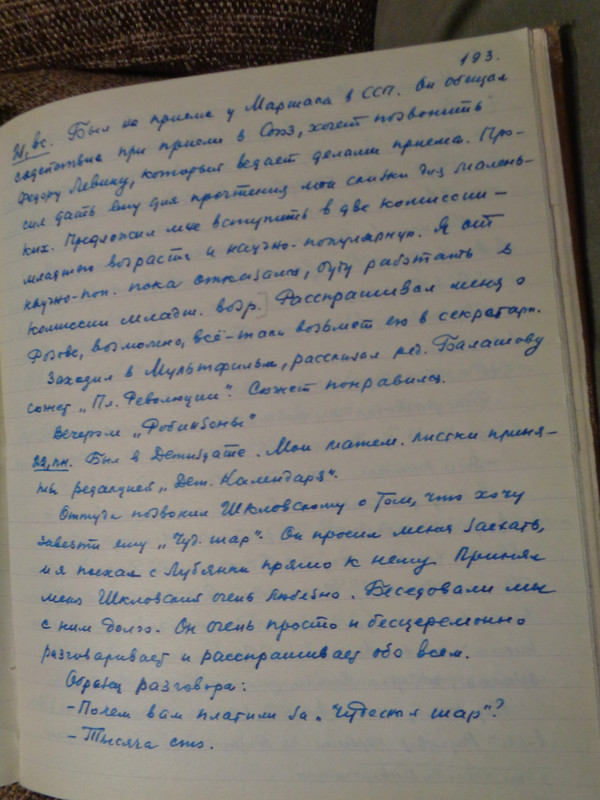 193.
21, вс. Был на приеме у Маршака в ССП. Он обещал
содействие при приеме в Союз, хочет позвонить
Федору Левину, который ведает делами приема. Про-
сил дать ему для прочтения мои книжки для малень-
ких. Предложил мне вступить в две комиссии –
младшего возраста и научно-популярную. Я от
научно-поп. пока отказался, буду работать в
комиссии младш. возр. Расспрашивал меня о
Розове, возможно, всё-таки возьмет его в секретари.
Заходил в Мультфильм, рассказал ред. Балашову
сюжет „Пл. Революции". Сюжет понравился.
Вечером „Робинзоны"
22, пн. Был в Детиздате. Мои матем. листки приня-
ты редакцией „Дет. Календаря".
Оттуда позвонил Шкловскому о том, что хочу
завезти ему „Чуд. шар". Он просил меня заехать,
и я поехал с Лубянки прямо к нему. Принял
меня Шкловский очень любезно. Беседовали мы
с ним долго. Он очень просто и бесцеремонно
разговаривает и расспрашивает обо всем.
Образец разговора:
– Почем вам платили за „Чудесный шар"?
– Тысяча сто.